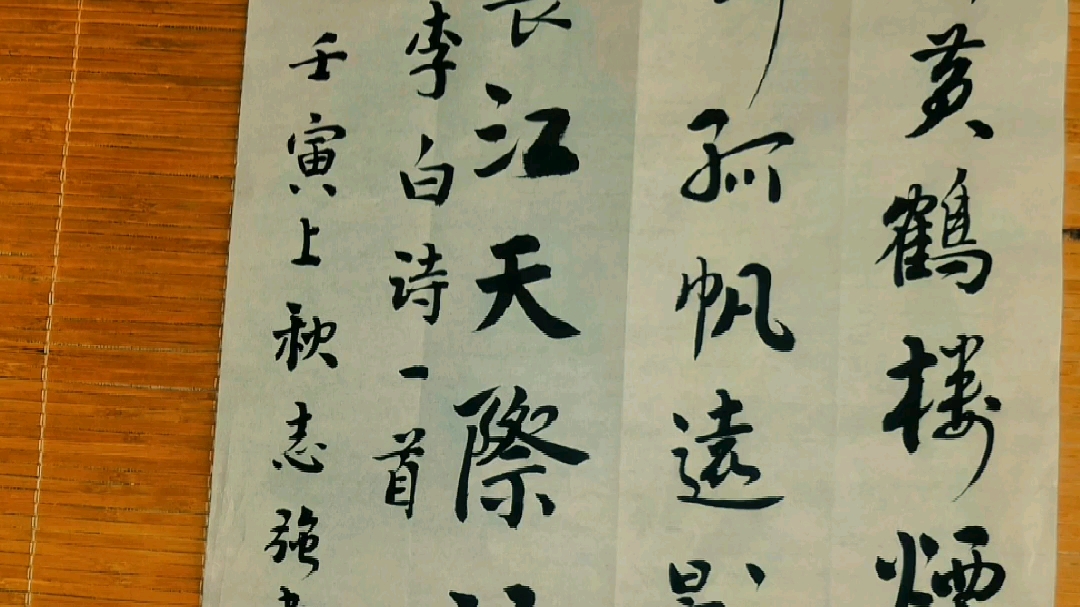 黄鹤楼烟
孤帆遠影
长江天際
李白诗一首
壬寅上秋志强